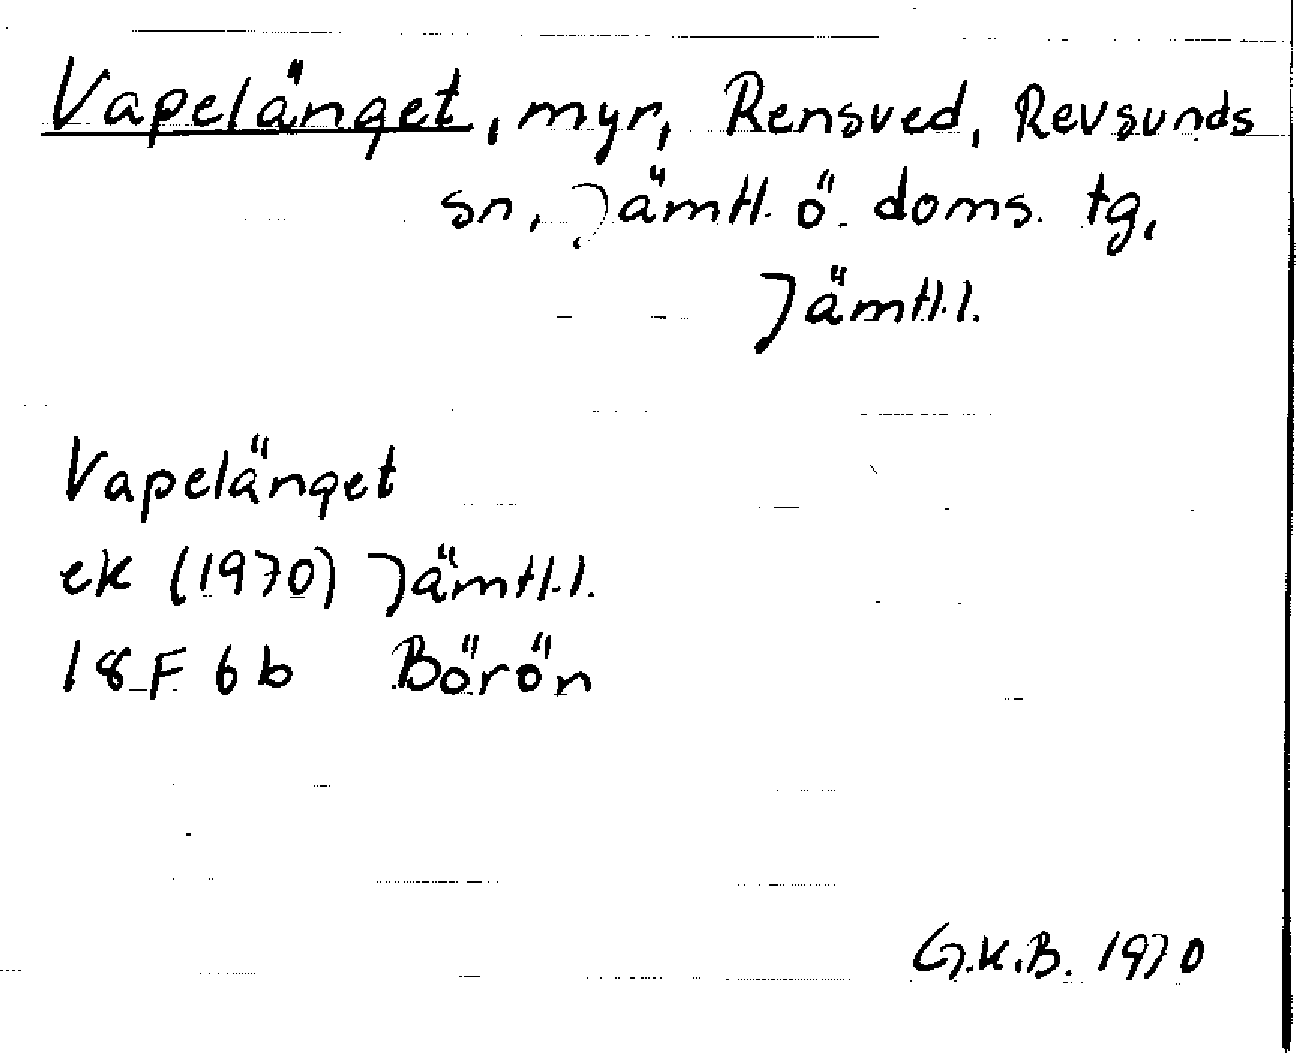 Vapelänget, myr, Rensved, Revsunds
sn, Jämtl. ö. doms. tg,
Jämtl.l.
Vapelänget
ek (1970) Jämtl.l.
18 F 6 b Börön
G.K.B. 1970